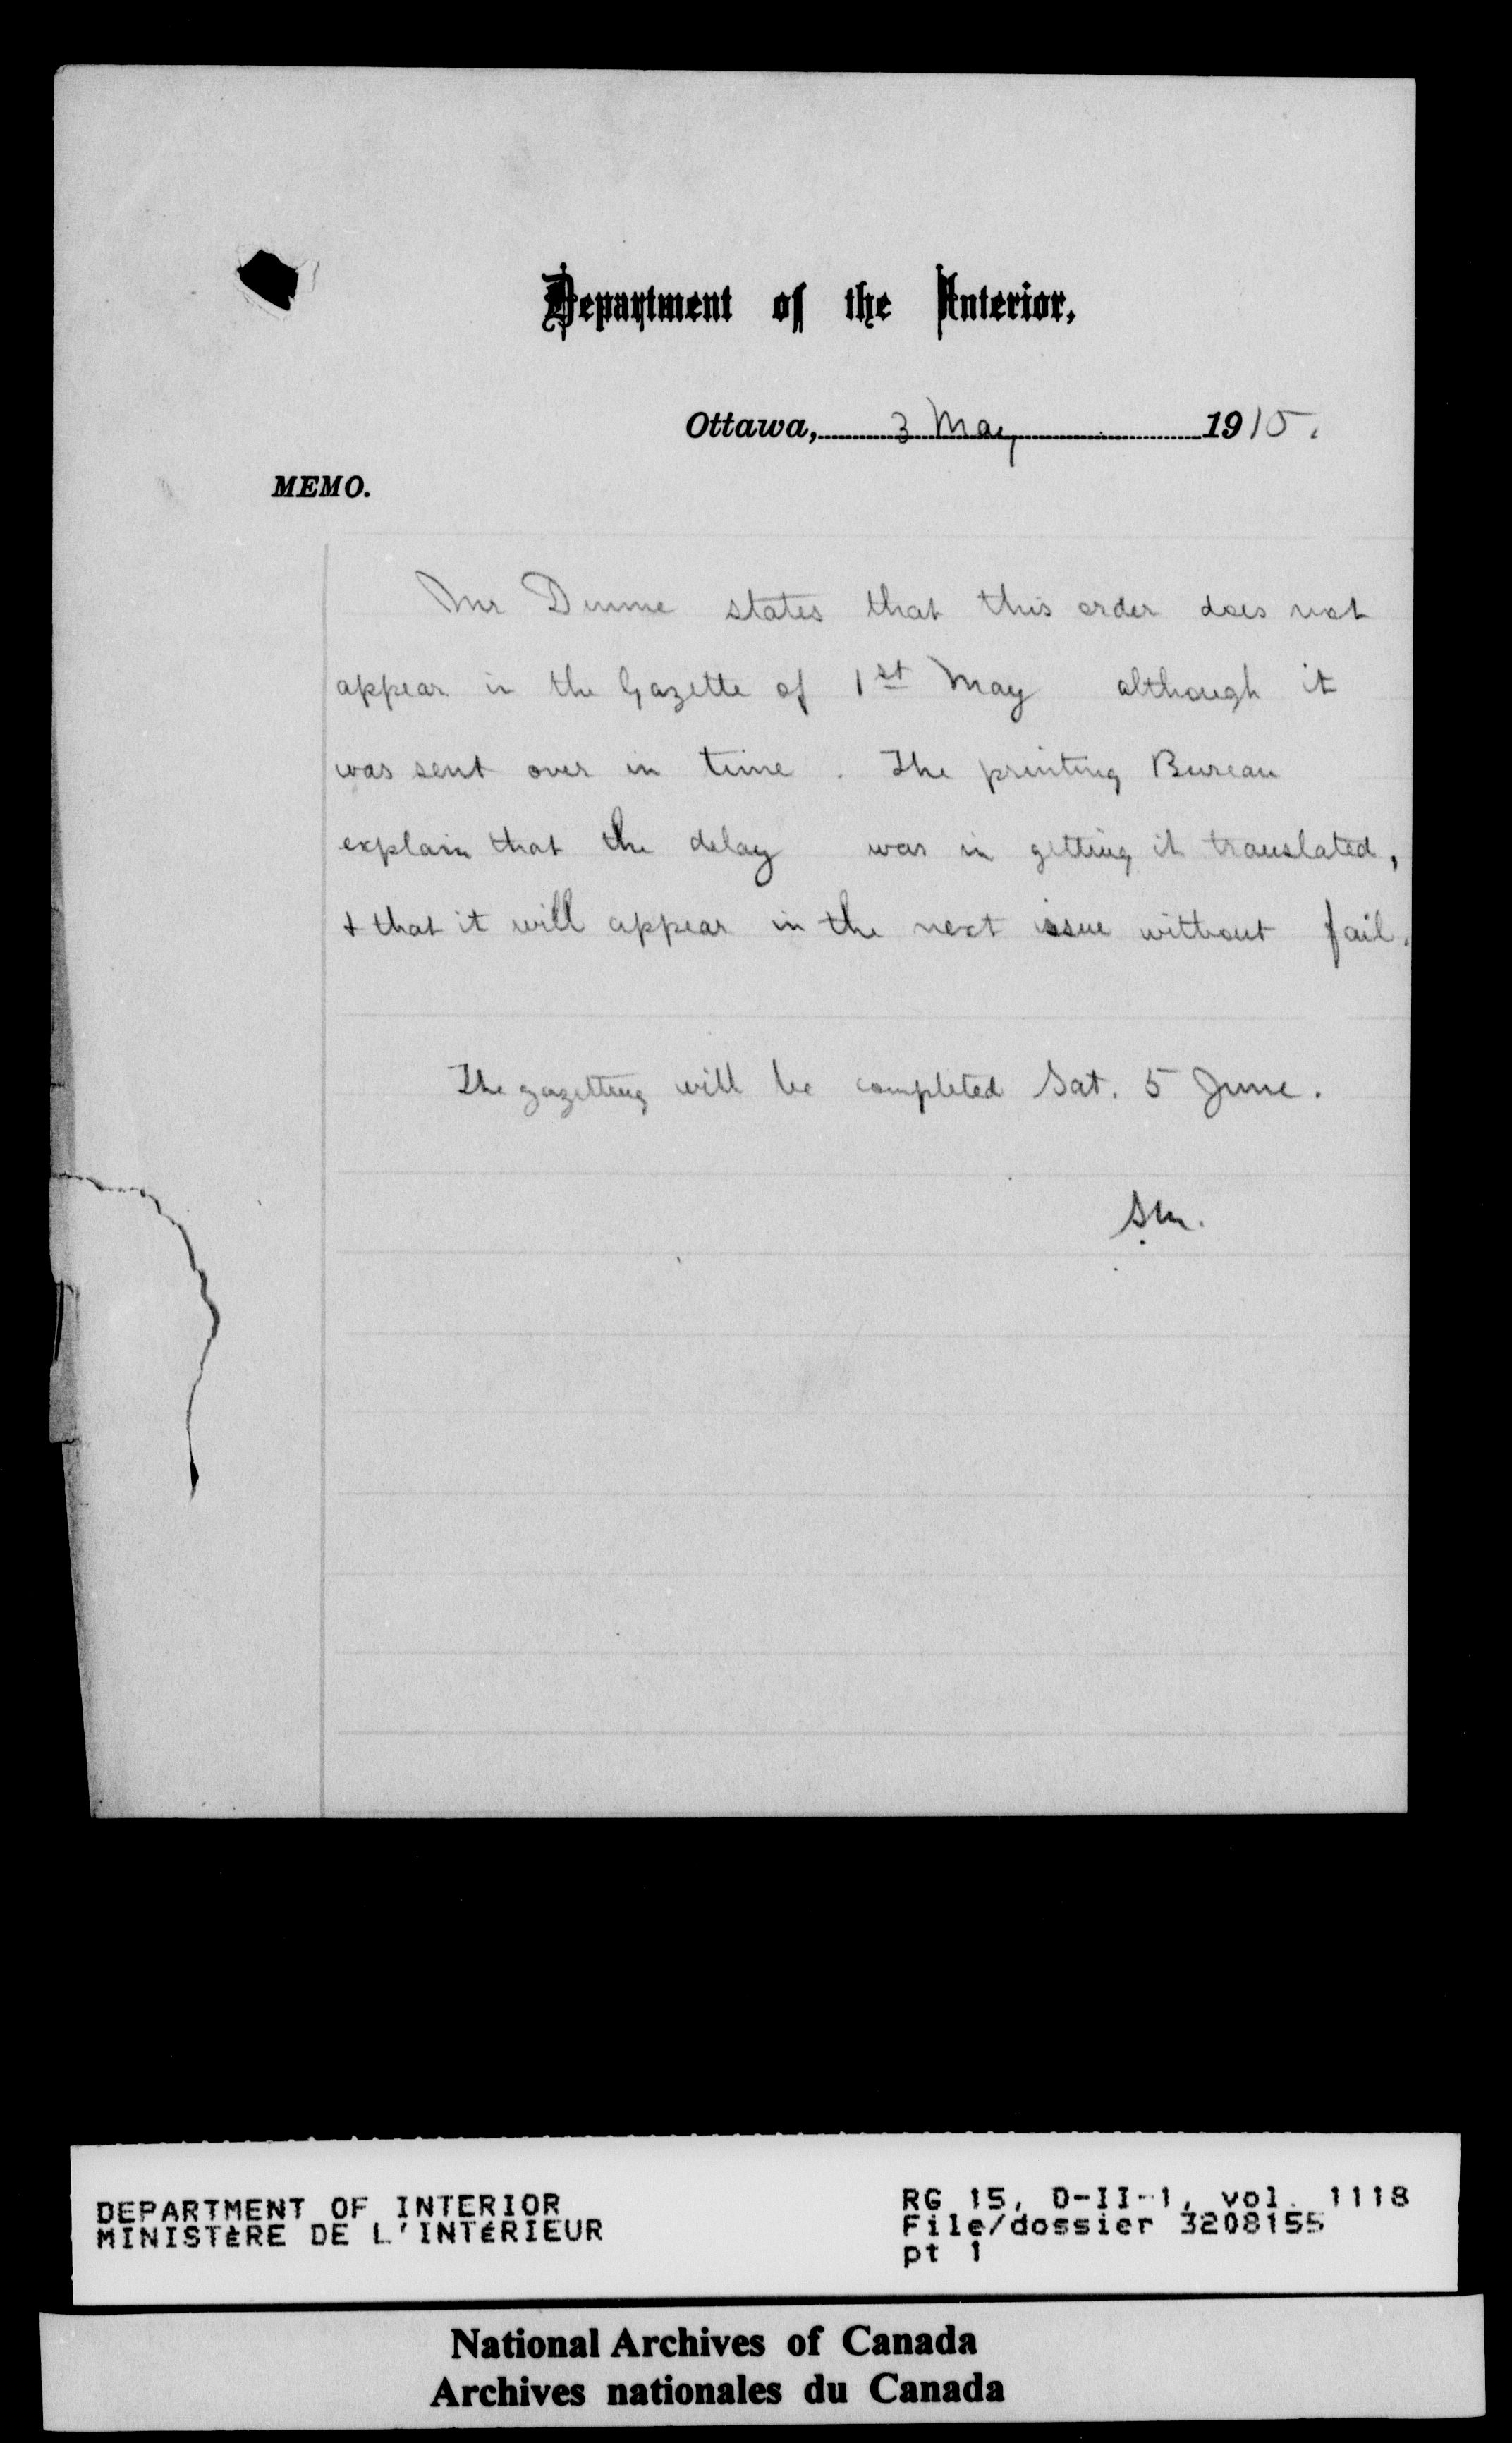 Department of the Interior,
Ottawa, 3 May 1915.
MEMO.
Mr states that this order does not
appear in the Gazette of 1st May although it
was sent over in time. The printing Bureau
explain that the delay was in getting it translated,
& that it will appear in the next issue without fail.
The gazetting will be completed Sat. 5 June.
DEPARTMENT OF INTERIOR
MINISTÈRE DE L'INTÉRIEUR
RG 15, D-II-1, vol. 1118
File/dossier 3208155
pt 1
National Archives of Canada
Archives nationales du Canada